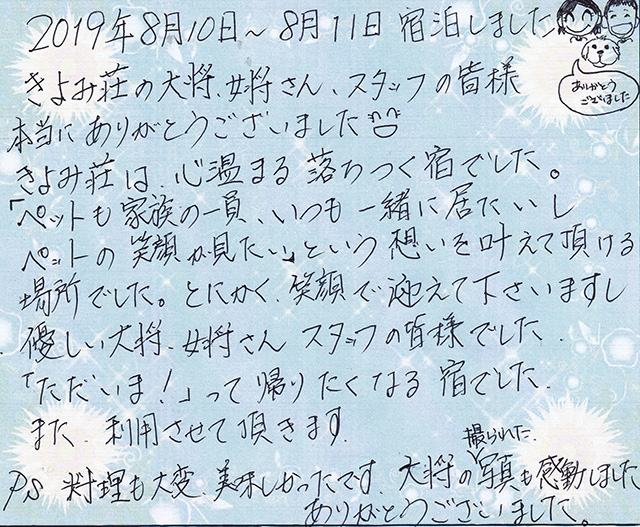 2019年8月10日～8月11日 宿泊しました
ありがとう
ございました
きよみ荘の大将、女将さん、スタッフの皆様
本当にありがとうございました
きよみ荘は、心温まる落ちつく宿でした。
「ペットも家族の一員、いつも一緒に居たいし
ペットの笑顔が見たい」という想いを叶えて頂ける
場所でした。とにかく、笑顔で迎えて下さいますし
優しい大将、女将さん スタッフの皆様でした.
「ただいま!」って帰りたくなる宿でした.
また、利用させて頂きます.
撮られた.
P.S 料理も大変、美味しかったです、大将の写真も感動しました
ありがとうございました。